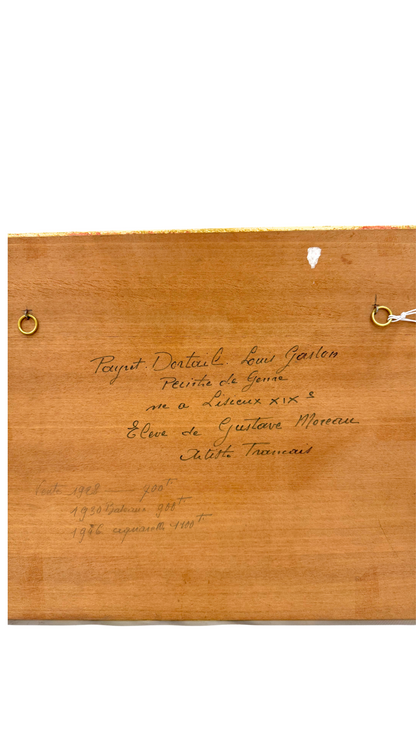 Payret. Dortail. Louis Gaston
Peintre de Genre
né a Lisieux XIX e
Elève de Gustave Moreau
Artiste Francais
Vente 1928 900 f
1930 900 f
1946 aquarelle 1100 f